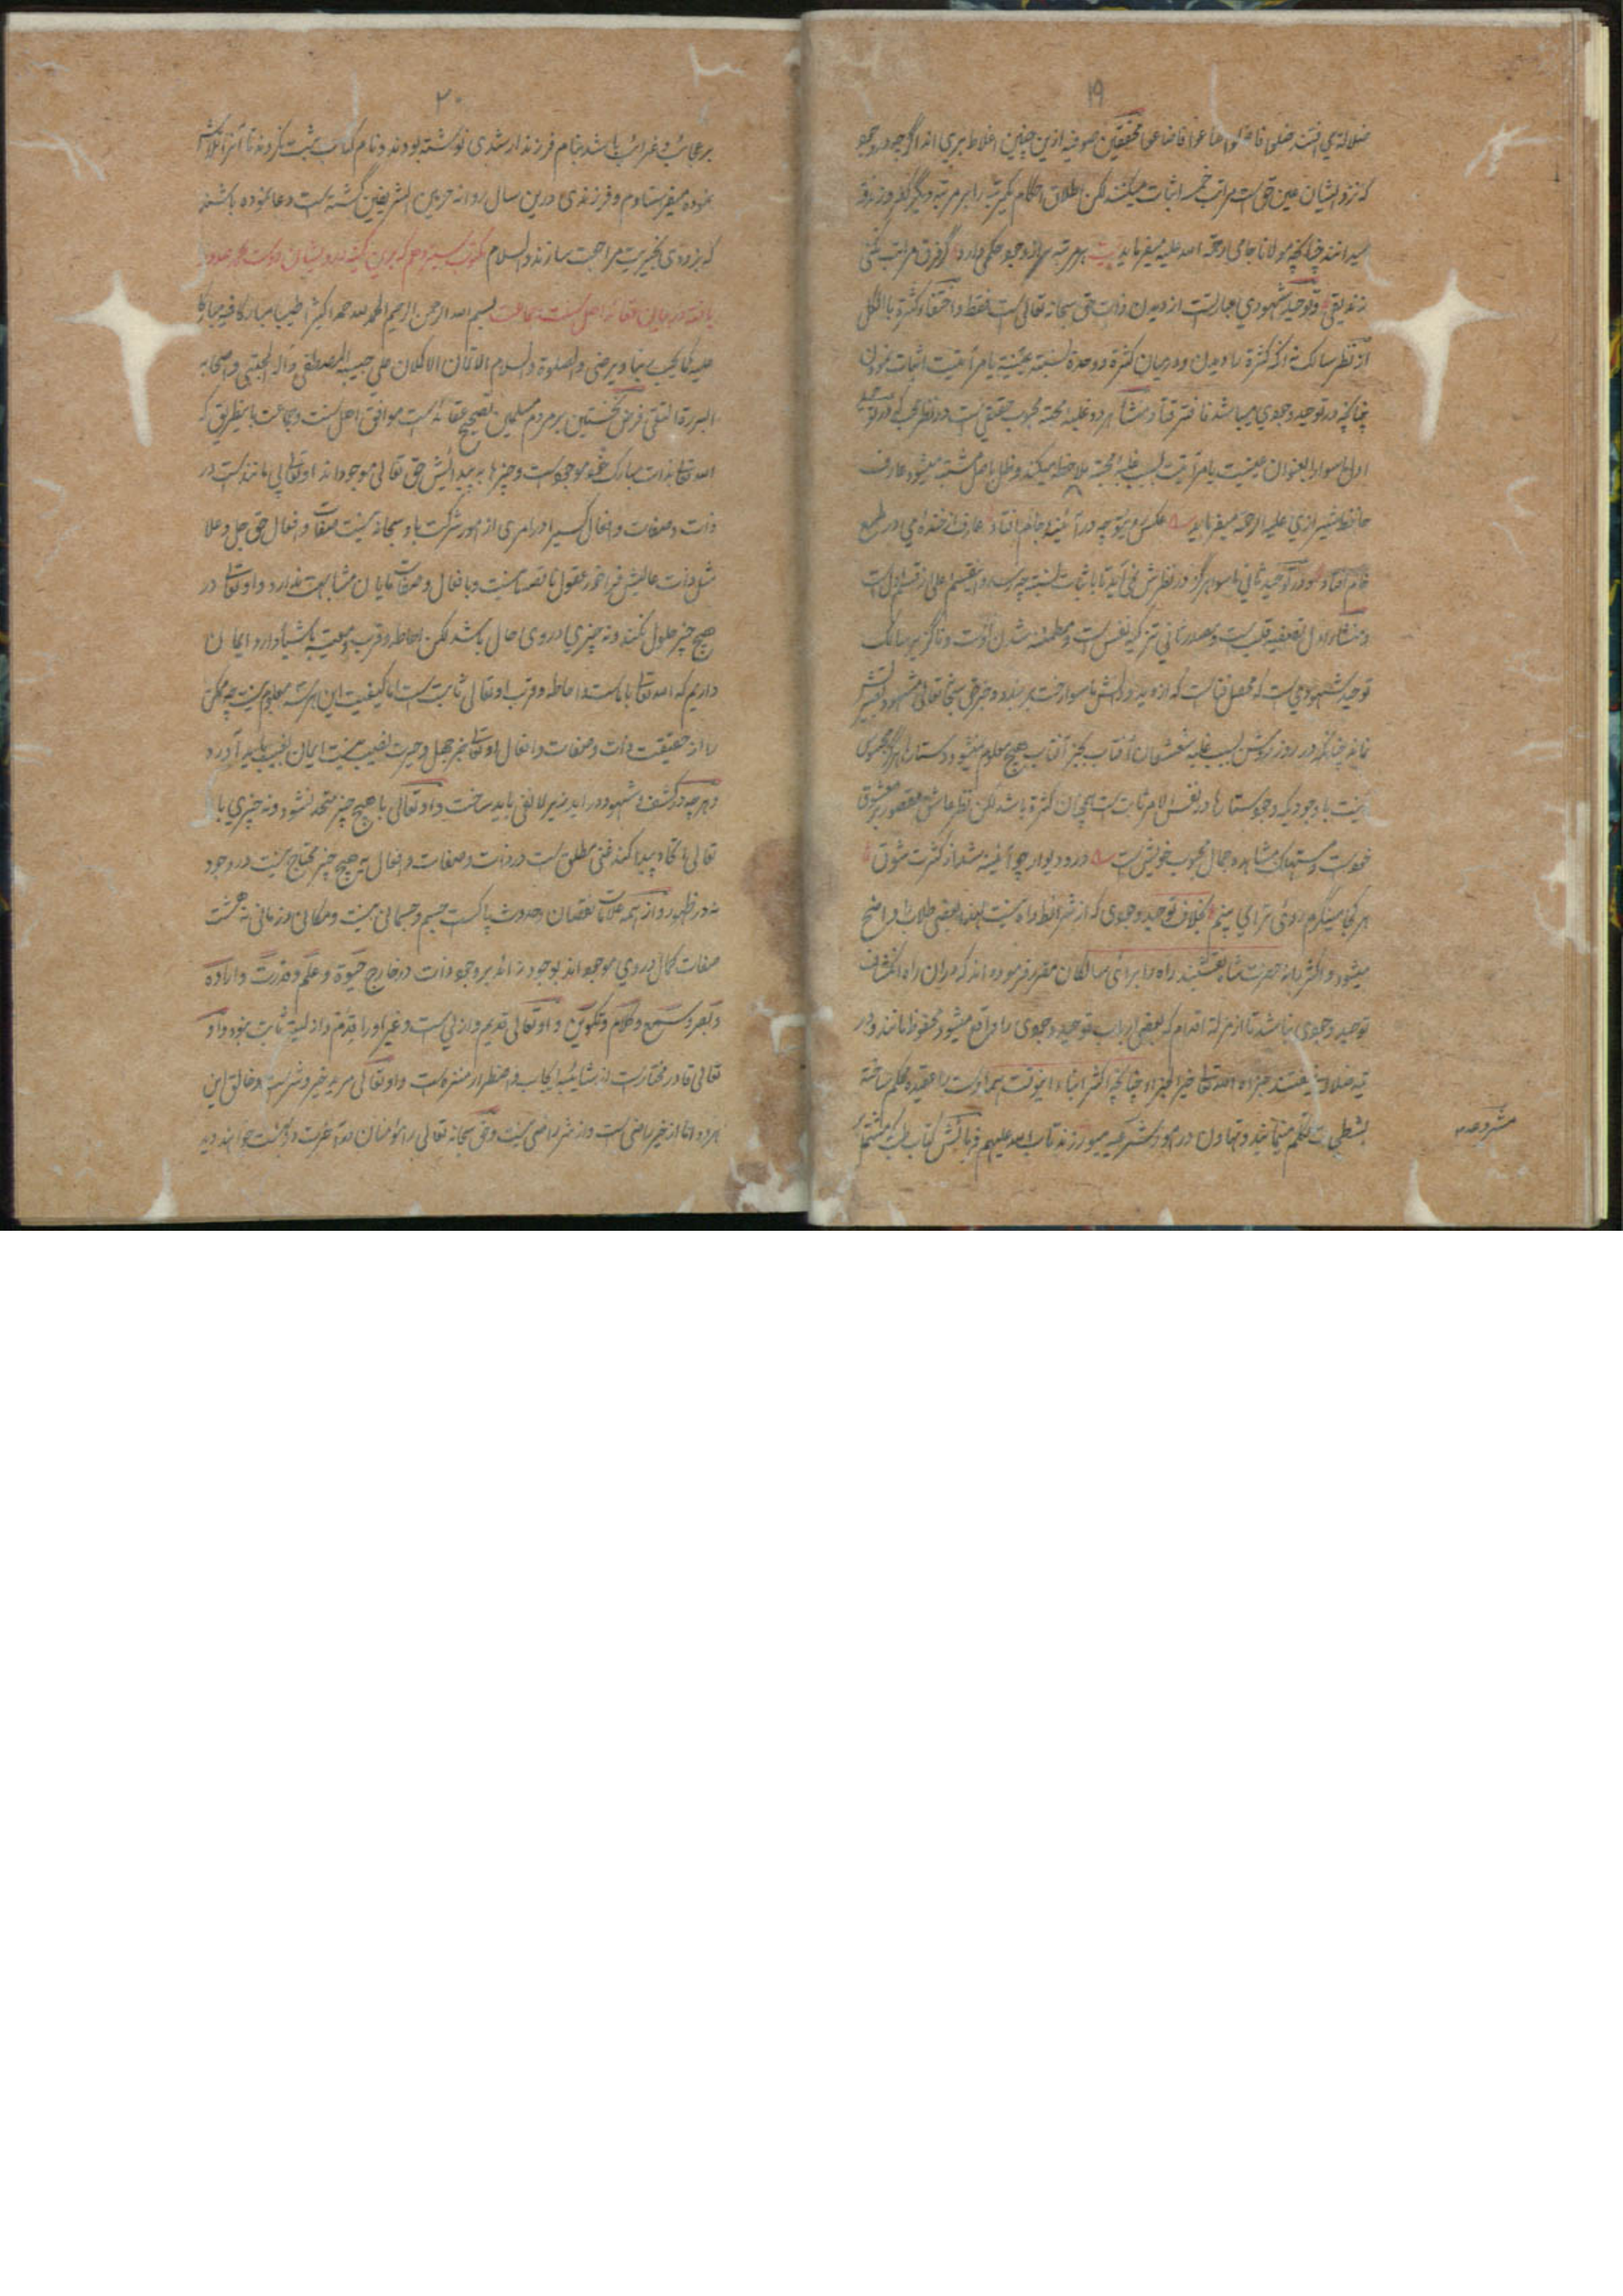 ۱۹
ضلالة می افتند ضلوا فاضلوا ضاعوا فاضاعوا محققین صوفیه ازین چنین اغلاط بری اند اگرچه در وجود
که نزد ایشان عین حق است مراتب خمسه اثبات میکنند لکن اطلاق احکام یکمرتبه را بر مرتبه دیگر کفر و زندقه
میدانند چنانچه مولانا جامی رحمة الله علیه میفرماید بیت هر مرتبه از وجود حکمی دارد گر فرق مراتب نکنی
زندیقی و توحید شهودی عبارتست از دیدن ذات حق سبحانه تعالی است فقط و اختفاء کثرة بالکل
از نظر سالک نه آنکه کثرة را دیدن و در میان کثرة و وحدة نسبته عینیة یا مرآتیت اثبات نمودن
چنانکه در توحید وجودی میباشد فافترقا و منشأ هر دو غلبه محبة محبوب حقیقی است در نظر محب که در توحید
اول ماسوا را بعنوان عینیت یا مرآتیت بسبب غلبه محبة ملاحظه میکند و ظل باصل مشتبه میشود عارف
حافظ شیرازی علیه الرحمه میفرماید عکس روی تو چو در آئینه جام افتاد عارف از خنده می در طمع
خام افتاد و در توحید ثانی ماسوا هرگز در نظرش نمی آید تا باثبات نسبته چه رسد و این قسم اعلی از قسم اول است
و منشاء اول تصفیه قلب است و مصدر ثانی تزکیه نفس است و مطمئنه شدن اوست و ناگزیر سالک
توحید شهودی است که محصل فناست که از دید و دانش ماسوا رخت بر بندد و جز حق سبحانه تعالی مشهود بصیرتش
نماند چنانکه در روز روشن بسبب غلبه شعشعان آفتاب بجز آفتاب هیچ معلوم نمیشود و ستارها هرگز محسوس
نیست با وجودیکه وجود ستارها در نفس الامر ثابت است همچنان کثرة باشد لکن نظر عاشق مقصور بر معشوق
خود است و مستهلک مشاهده جمال محبوب خویش است در و دیوار چو آئینه شد از کثرت شوق
هر کجا مینگرم روی ترا می بینم بخلاف توحید وجودی که از شرائط راه نیست لهذا بعضی طلاب را واضح
میشود و اکثر را نه حضرت شاه نقشبند راه را برای سالکان مقرر فرموده اند که دران راه انکشاف
توحید وجودی نباشد تا از مزلة اقدام که بعضی ارباب توحید وجودی را واقع میشود محفوظ مانند و در
تیه ضلالت نیفتند جزاه الله تعالی خیر الجزاء چنانچه اکثر ابناء این وقت همه اوست را عقیده محکم ساخته
بشطحیات تکلم مینمایند و تهاون در امور شرعیه میورزند تاب الله علیهم فرمایش کتاب طب که مشتمل
مشروعه
۲۰
بر عجائب و غرائب باشد بنام فرزند ارشدی نوشته بودند و نام کتاب ثبت نکردند تا آنرا تلاش
نموده میفرستادم و فرزندی درین سال روانه حرمین الشریفین گشته است دعا نموده باشند
که بزودی بخیریت مراجعت سازند والسلام مکتوب بیست و دوم که
یافته در بیان عقائد اهل سنت جماعت بسم الله الرحمن الرحیم الحمد لله حمدا کثیرا طیبا مبارکا فیه مبارکا
علیه کما یحب ربنا ویرضی والصلوة والسلام الاتمان الاکملان علی حبیبه المصطفی وآله المجتبی واصحابه
البررة التقی فرض نخستین بر مردم مسلمین تصحیح عقائد است موافق اهل سنت و جماعت باینطریق که
الله تعالی بذات مبارک خود موجود است و چیزها به پیدائیش حق تعالی موجود اند او تعالی بی مانند است در
ذات و صفات و افعال کسیرا در امری از امور شرکت باو سبحانه نیست صفات و افعال حق جل و علا
مثل ذات عالیش فراخور عقول ناقصه نیست و بافعال و صفات مایان مشابهت ندارد و او تعالی در
هیچ چیز حلول نکند و نه چیزی در وی حال باشد لکن احاطه و قرب و معیت باشیا دارد ایمان
داریم که الله تعالی با ماست و احاطه و قرب او تعالی ثابت است اما کیفیت این هر سه معلوم نیست چه ممکن
را از حقیقت ذات و صفات و افعال او تعالی بجز جهل و حیرت نصیب نیست ایمان بغیب باید آورد
و هر چه در کشف و شهود در آید زیر لا نفی باید ساخت و او تعالی با هیچ چیز متحد نشود و نه چیزی با او
تعالی اتحاد پیدا کند غنی مطلق است در ذات و صفات و افعال بهیچ چیز محتاج نیست در وجود
نه در ظهور و از همه علامات نقصان و حدوث پاکست جسم و جسمانی نیست و مکانی و زمانی نه هشت
صفات کمال در وی موجود اند بوجود زائد بر وجود ذات در خارج حیوة و علم و قدرت و اراده
و بصر و سمع و کلام و تکوین و او تعالی قدیم و ازلی است و غیر او را قدم و ازلیت ثابت نبود و او
تعالی قادر مختار است از شائبه ایجاب و اضطرار منزه است و او تعالی مرید خیر و شر است و خالق این
هر دو اما از خیر راضی است و از شر راضی نیست و حق سبحانه تعالی را مؤمنان در آخرت در بهشت خواهند دید